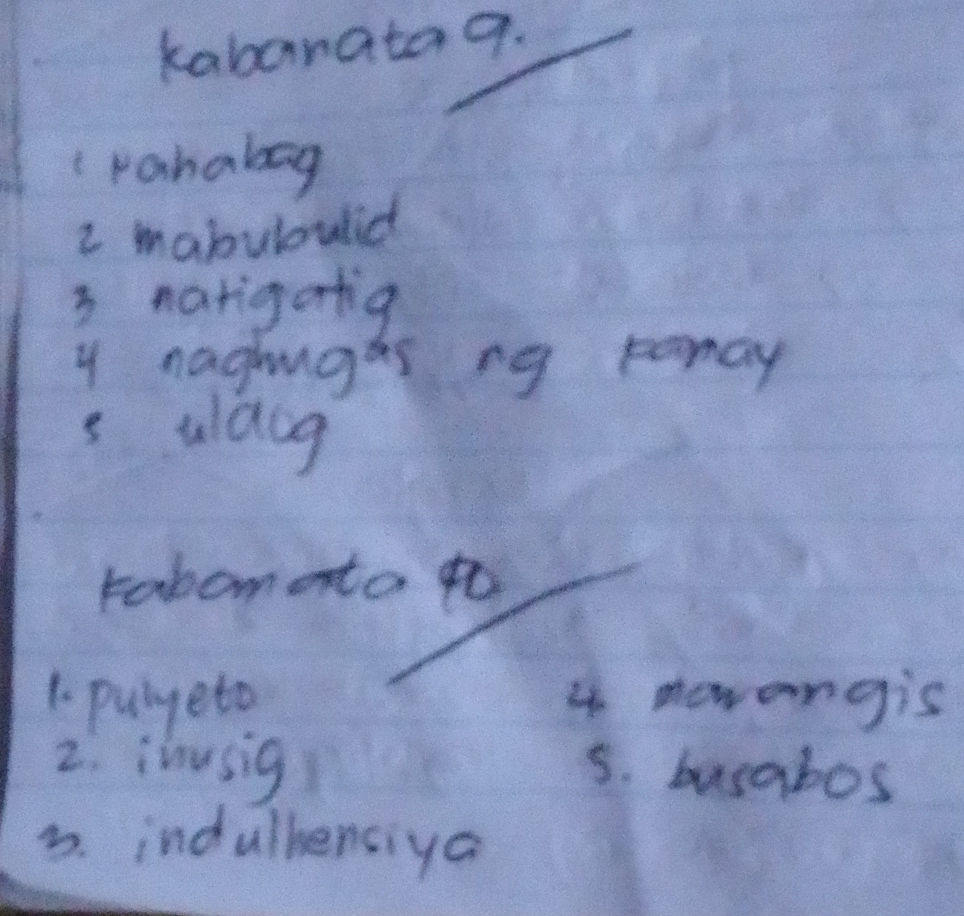 Kabanata 9.
1 nahabag
2 mabubulid
3 natigatig
4 naghugas ng kamay
5 ulaog
Kabanata 10
1. pulyeto
2. inusig
3. indulhensiya
4 nawangis
5. busabos